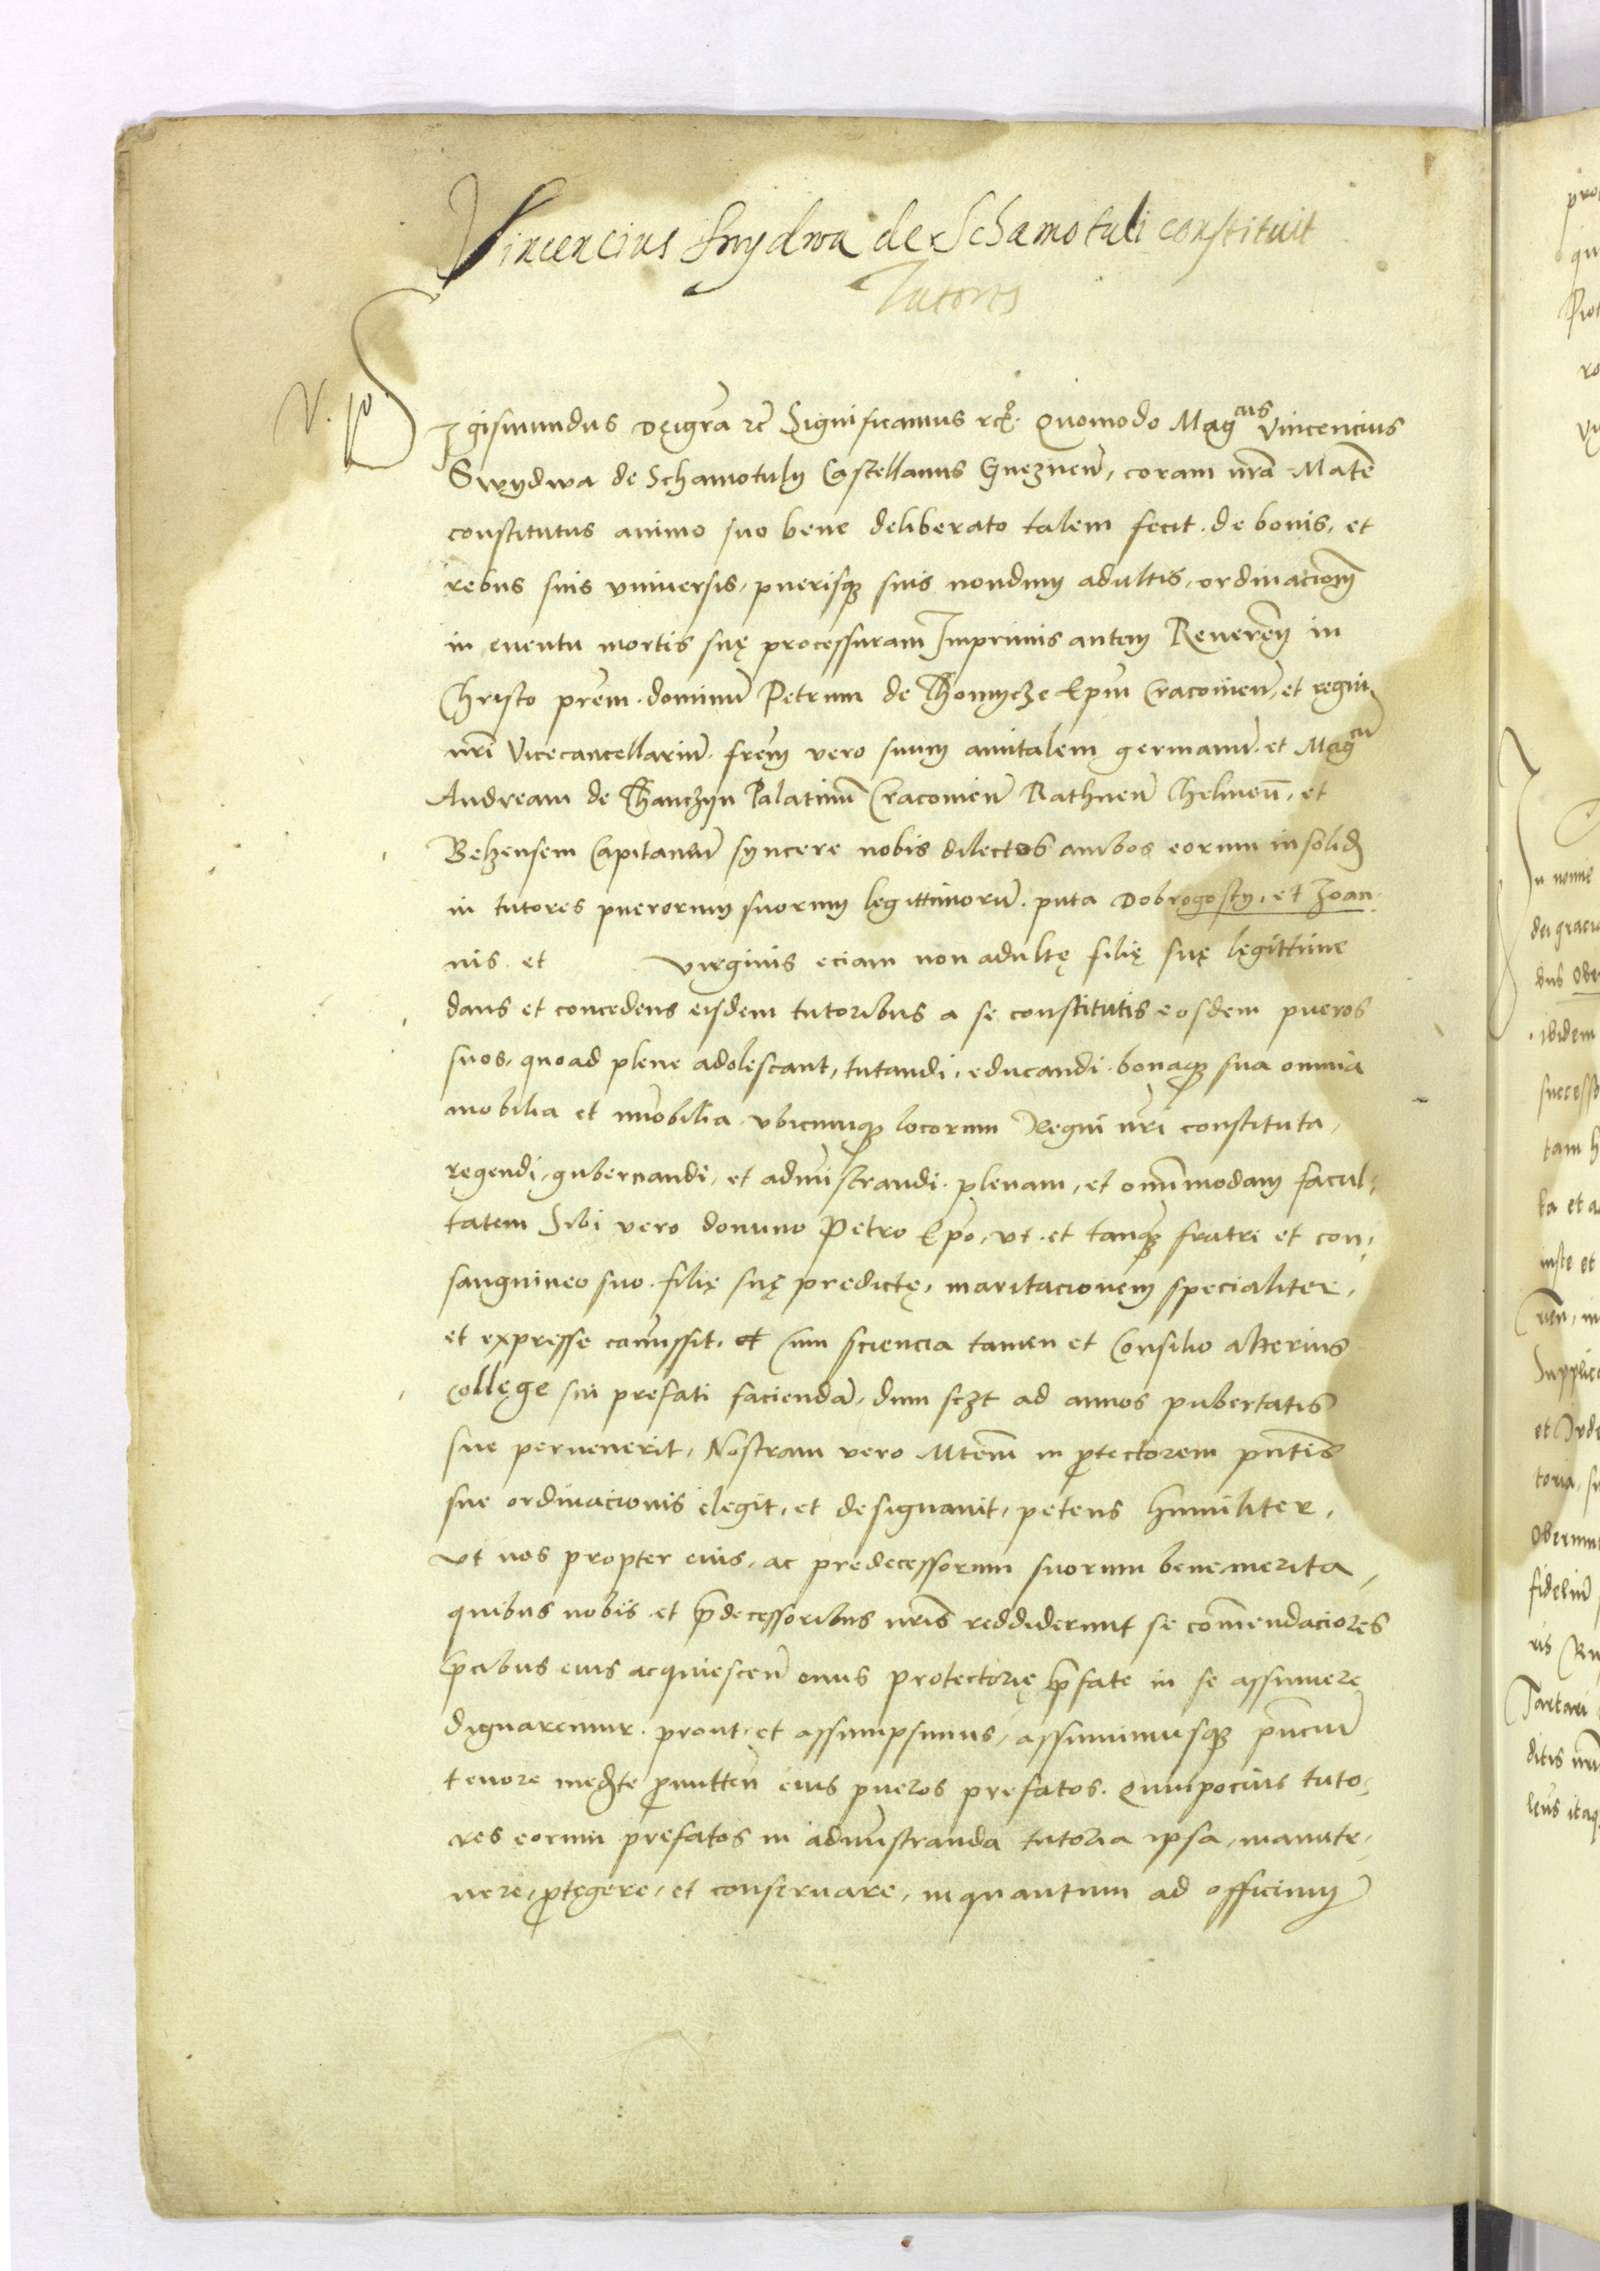 Vincencius Swydwa de Schamotuli constituit
Tutores
V.
Sigismundus Dei gra etc Significamus etc. Quomodo Magcus Vincencius
Swydwa de Schamotuly Castellanus Gneznen, coram nra Mate
constitutus animo suo bene deliberato talem fecit. de bonis, et
rebus suis vniuersis, puerisq suis nondum adultis, ordinacionem
in euentu mortis suę processuram Imprimis autem Reuerem in
Christo prem. dominum Petrum de Thomycze Epum Cracouien, et regni
nri Vicecancellarium. frem vero suum amitalem germanum. et Magcum
Andream de Thanczyn Palatinum Cracouien Rathnen Chelmen, et
Belzensem Capitaneum syncere nobis dilectos ambos eorum insolid
in tutores puerorum suorum legittimorum. puta Dobrogosty, et Joan
nis. et virginis eciam non adultę filię suę legittime
dans et concedens eisdem tutoribus a se constitutis eosdem pueros
suos, quoad plene adolescant, tutandi, educandi. bonaq sua omnia
mobilia et immobilia vbicumq locorum Regni nri constituta,
regendi, gubernandi, et administrandi. plenam, et omnimodam facul,
tatem Sibi vero domino Petro Epo, vt et tanq fratri et con,
sanguineo suo. filię suę predictę, maritacionem specialiter,
et expresse comissit, et cum sciencia tamen et Consilio alterius
collęge sui prefati faciendam, dum sczt ad annos pubertatis
sue peruenerit, Nostram vero Mtem in ptectorem pntis
sue ordinacionis elegit, et designauit, petens humiliter,
vt nos propter eius, ac predecessorum suorum benemerita,
quibus nobis et pdecessoribus nris reddiderunt se comendaciores
pcibus eius acquiescen onus protectorię pfate in se assumere
dignaremur. prout et assumpsimus, assumimusq pncium
tenore medte pmitten eius pueros prefatos. Quinpocius tuto,
res eorum prefatos in administranda tutoria ipsa, manute,
nere, ptegere, et conseruare, inquantum ad officium